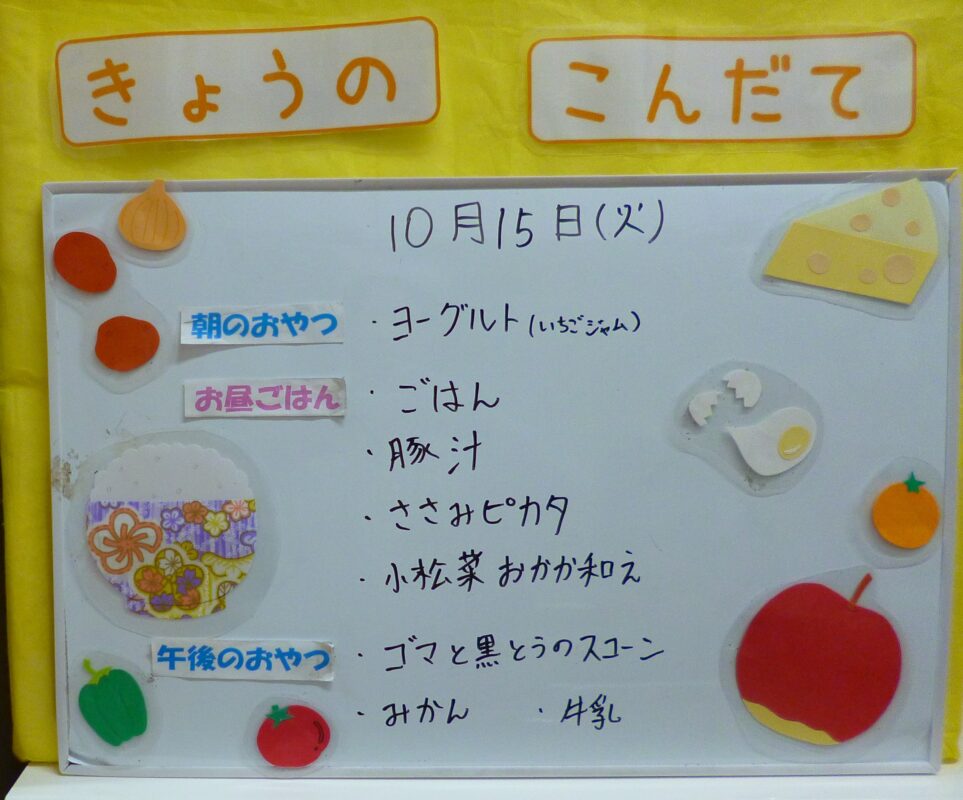 きょうの こんだて
10月15日(火)
朝のおやつ ・ヨーグルト(いちごジャム)
お昼ごはん ・ごはん
・豚汁
・ささみピカタ
・小松菜おかか和え
午後のおやつ ・ゴマと黒とうのスコーン
・みかん ・牛乳